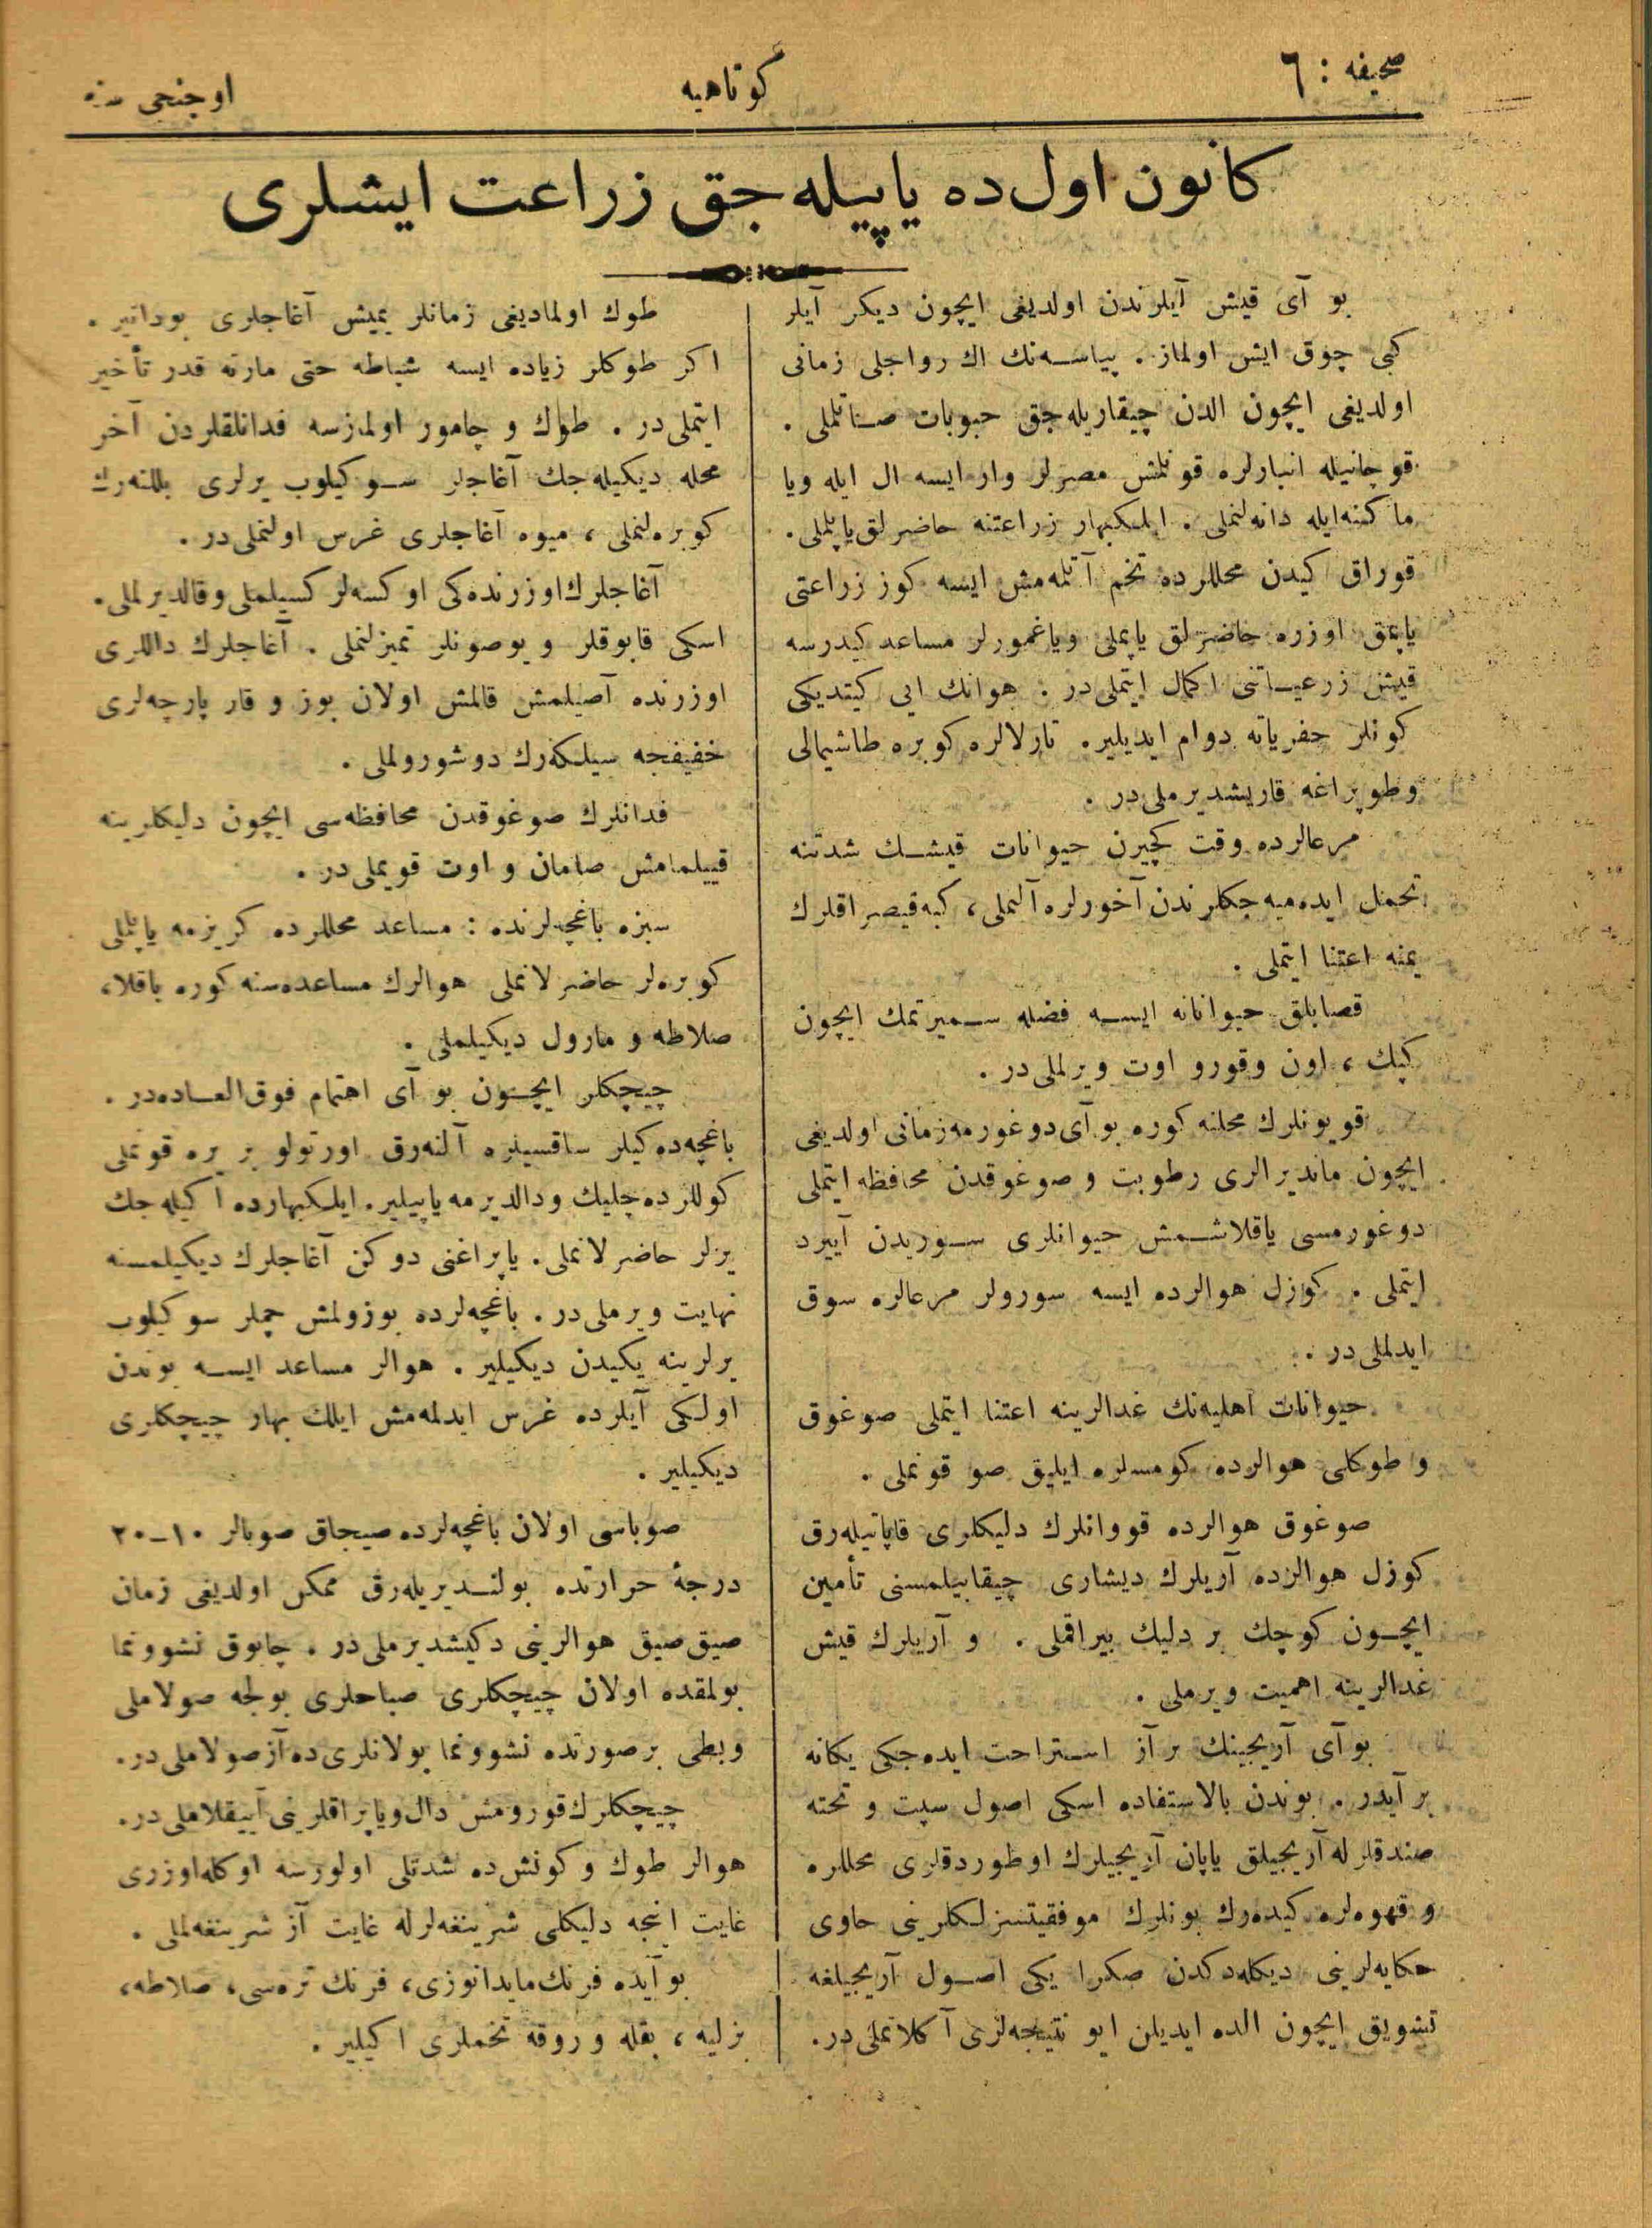 صحیفه : ٦
كوتاهیه
اوچنجی سنه
كانون اول ده یاپیله جق زراعت ایشلری
بو آی قیش آیلرندن اولدیغی ایچون دیكر آیلر
كبی چوق ایش اولماز . پیاسه نك اك رواجلی زمانی
اولدیغی ایچون الدن چیقاریله جق حبوبات صاتملی .
قوچانیله انبارلره قونلمش مصرلر وار ایسه ال ایله ویا
ماكنه ایله دانه لنملی . ایلكبهار زراعتنه حاضرلق یاپلملی .
قوراق كیدن محللرده تخم آتلمه مش ایسه كوز زراعتی
یاپمق اوزره حاضرلق یاپملی ویاغمورلر مساعد كیدرسه
قیش زرعیاتنی اكمال ایتملی در . هوانك ایی كیتدیكی
كونلر حفریاته دوام ایدیلیر . تارلالره كوبره طاشیمالی
وطوپراغه قاریشدیرملی در .
مرعالرده وقت كچیرن حیوانات قیشك شدتنه
تحمل ایده میه جكلرندن آخورلره آلنملی ، كبه قیصراقلرك
یمنه اعتنا ایتملی .
قصابلق حیواناته ایسه فضله سمیرتمك ایچون
كپك ، اون وقورو اوت ویرلملی در .
قویونلرك محلنه كوره بو آی دوغورمه زمانی اولدیغی
ایچون ماندیرالری رطوبت و صوغوقدن محافظه ایتملی
دوغورمسی یاقلاشمش حیوانلری سوریدن آییرد
ایتملی . كوزل هوالرده ایسه سورولر مرعالره سوق
ایدلملی در .
حیوانات اهلیه نك غدالرینه اعتنا ایتملی صوغوق
و طوكلی هوالرده كومسلره ایلیق صو قونملی .
صوغوق هوالرده قووانلرك دلیكلری قاپاتیله رق
كوزل هوالرده آریلرك دیشاری چیقابیلمسنی تأمین
ایچون كوچك بر دلیك بیراقملی . و آریلرك قیش
غدالرینه اهمیت ویرملی .
بو آی آریجینك بر آز استراحت ایده جكی یكانه
بر آیدر . بوندن بالاستفاده اسكی اصول سپت و تخته
صندقلرله آریجیلق یاپان آریجیلرك اوطوردقلری محللره
و قهوه لره كیده رك بونلرك موفقیتسزلكلرینی حاوی
حكایه لرینی دیكله دكدن صكرا یكی اصول آریجیلغه
تشویق ایچون الده ایدیلن ایو نتیجه لری آكلاتملی در .
طوك اولمادیغی زمانلر یمیش آغاجلری بوداتیر .
اكر طوكلر زیاده ایسه شباطه حتی مارته قدر تأخیر
ایتملی در . طوك و چامور اولمازسه فدانلقلردن آخر
محله دیكیله جك آغاجلر سوكیلوب یرلری بللنه رك
كوبره لنملی ، میوه آغاجلری غرس اولنملی در .
آغاجلرك اوزرنده كی اوكسه لر كسیلملی وقالدیرلملی .
اسكی قابوقلر و یوصونلر تمیزلنملی . آغاجلرك داللری
اوزرنده آصیلمش قالمش اولان بوز و قار پارچه لری
خفیفجه سیلكه رك دوشورولملی .
فدانلرك صوغوقدن محافظه سی ایچون دلیكلرینه
قییلمامش صامان و اوت قویملی در .
سبزه باغچه لرنده : مساعد محللرده كریزمه یاپلملی
كوبره لر حاضرلانملی هوالرك مساعده سنه كوره باقلا ،
صلاطه و مارول دیكیلملی .
چیچكلر ایچون بو آی اهتمام فوق العاده در .
باغچه ده كیلر ساقسیلره آلنه رق اورتولو بر یره قونملی
كوللرده چلیك ودالدیرمه یاپیلیر . ایلكبهارده اكیله جك
یرلر حاضرلانملی . یاپراغنی دوكن آغاجلرك دیكیلمسنه
نهایت ویرملی در . باغچه لرده بوزولمش چملر سوكیلوب
یرلرینه یكیدن دیكیلیر . هوالر مساعد ایسه بوندن
اولكی آیلرده غرس ایدلمه مش ایلك بهار چیچكلری
دیكیلیر .
صوباسی اولان باغچه لرده صیجاق صوبالر ١٠-٢٠
درجهٔ حرارتده بولندیریله رق ممكن اولدیغی زمان
صیق صیق هوالرینی دكیشدیرملی در . چابوق نشوونما
بولمقده اولان چیچكلری صباحلری بولجه صولاملی
وبطی بر صورتده نشوونما بولانلری ده آز صولاملی در .
چیچكلرك قورومش دال ویاپراقلرینی آییقلاملی در .
هوالر طوك و كونش ده شدتلی اولورسه اوكله اوزری
غایت اینجه دلیكلی شرینغه لرله غایت آز شرینغه لملی .
بو آیده فرنك مایدانوزی ، فرنك تره سی ، صلاطه ،
بزلیه ، بقله و روقه تخملری اكیلیر .